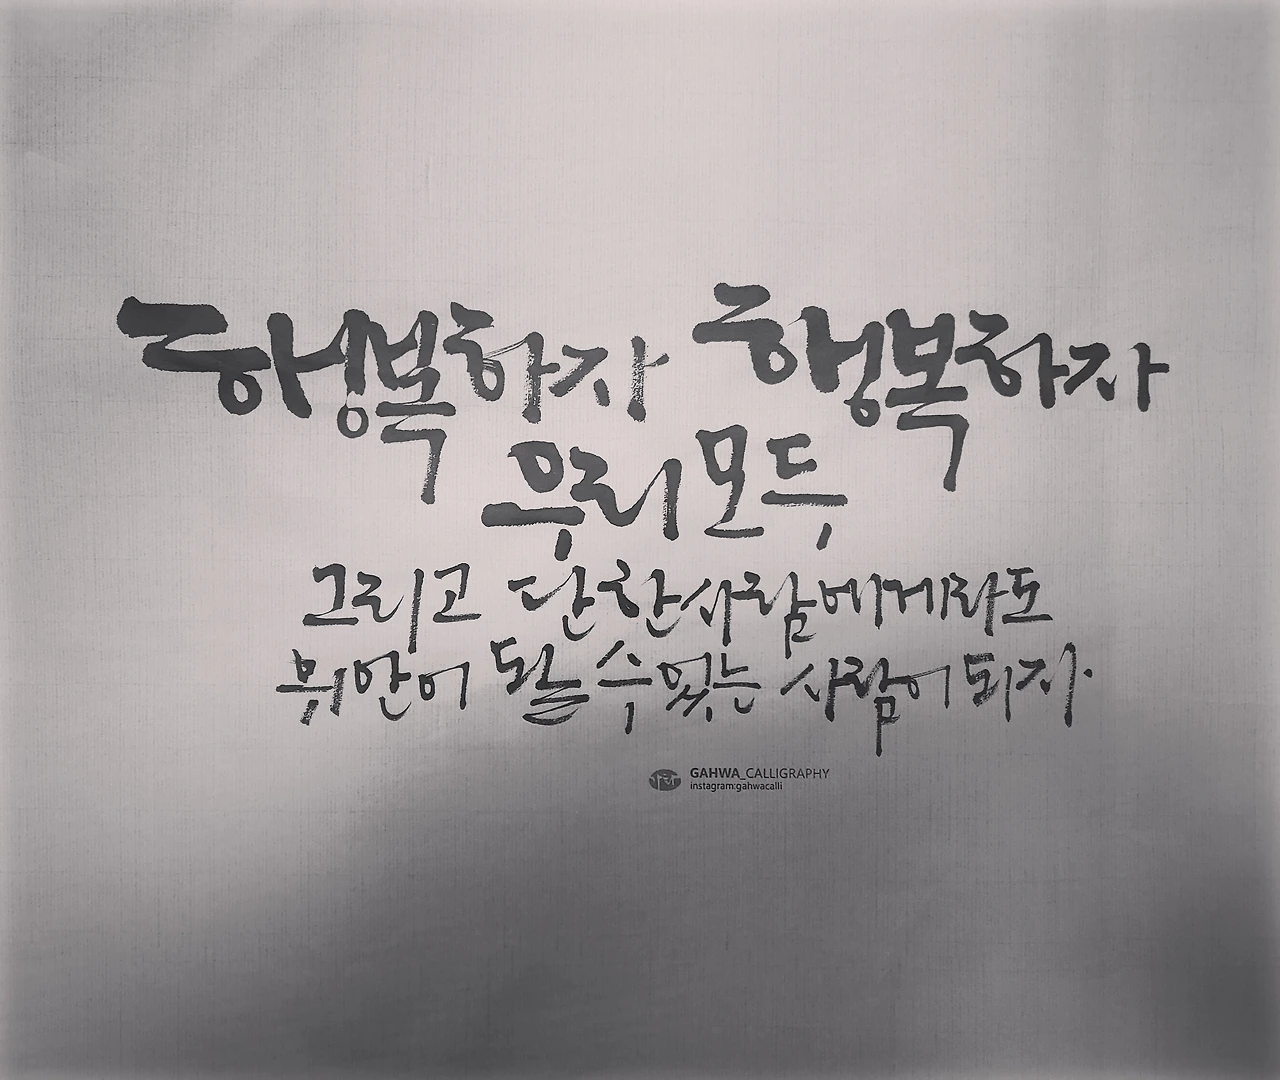 행복하자 행복하자
우리 모두
그리고 단 한사람에게라도
위안이 될 수 있는 사람이 되자.
가화
GAHWA_CALLIGRAPHY
instagram:gahwacalli